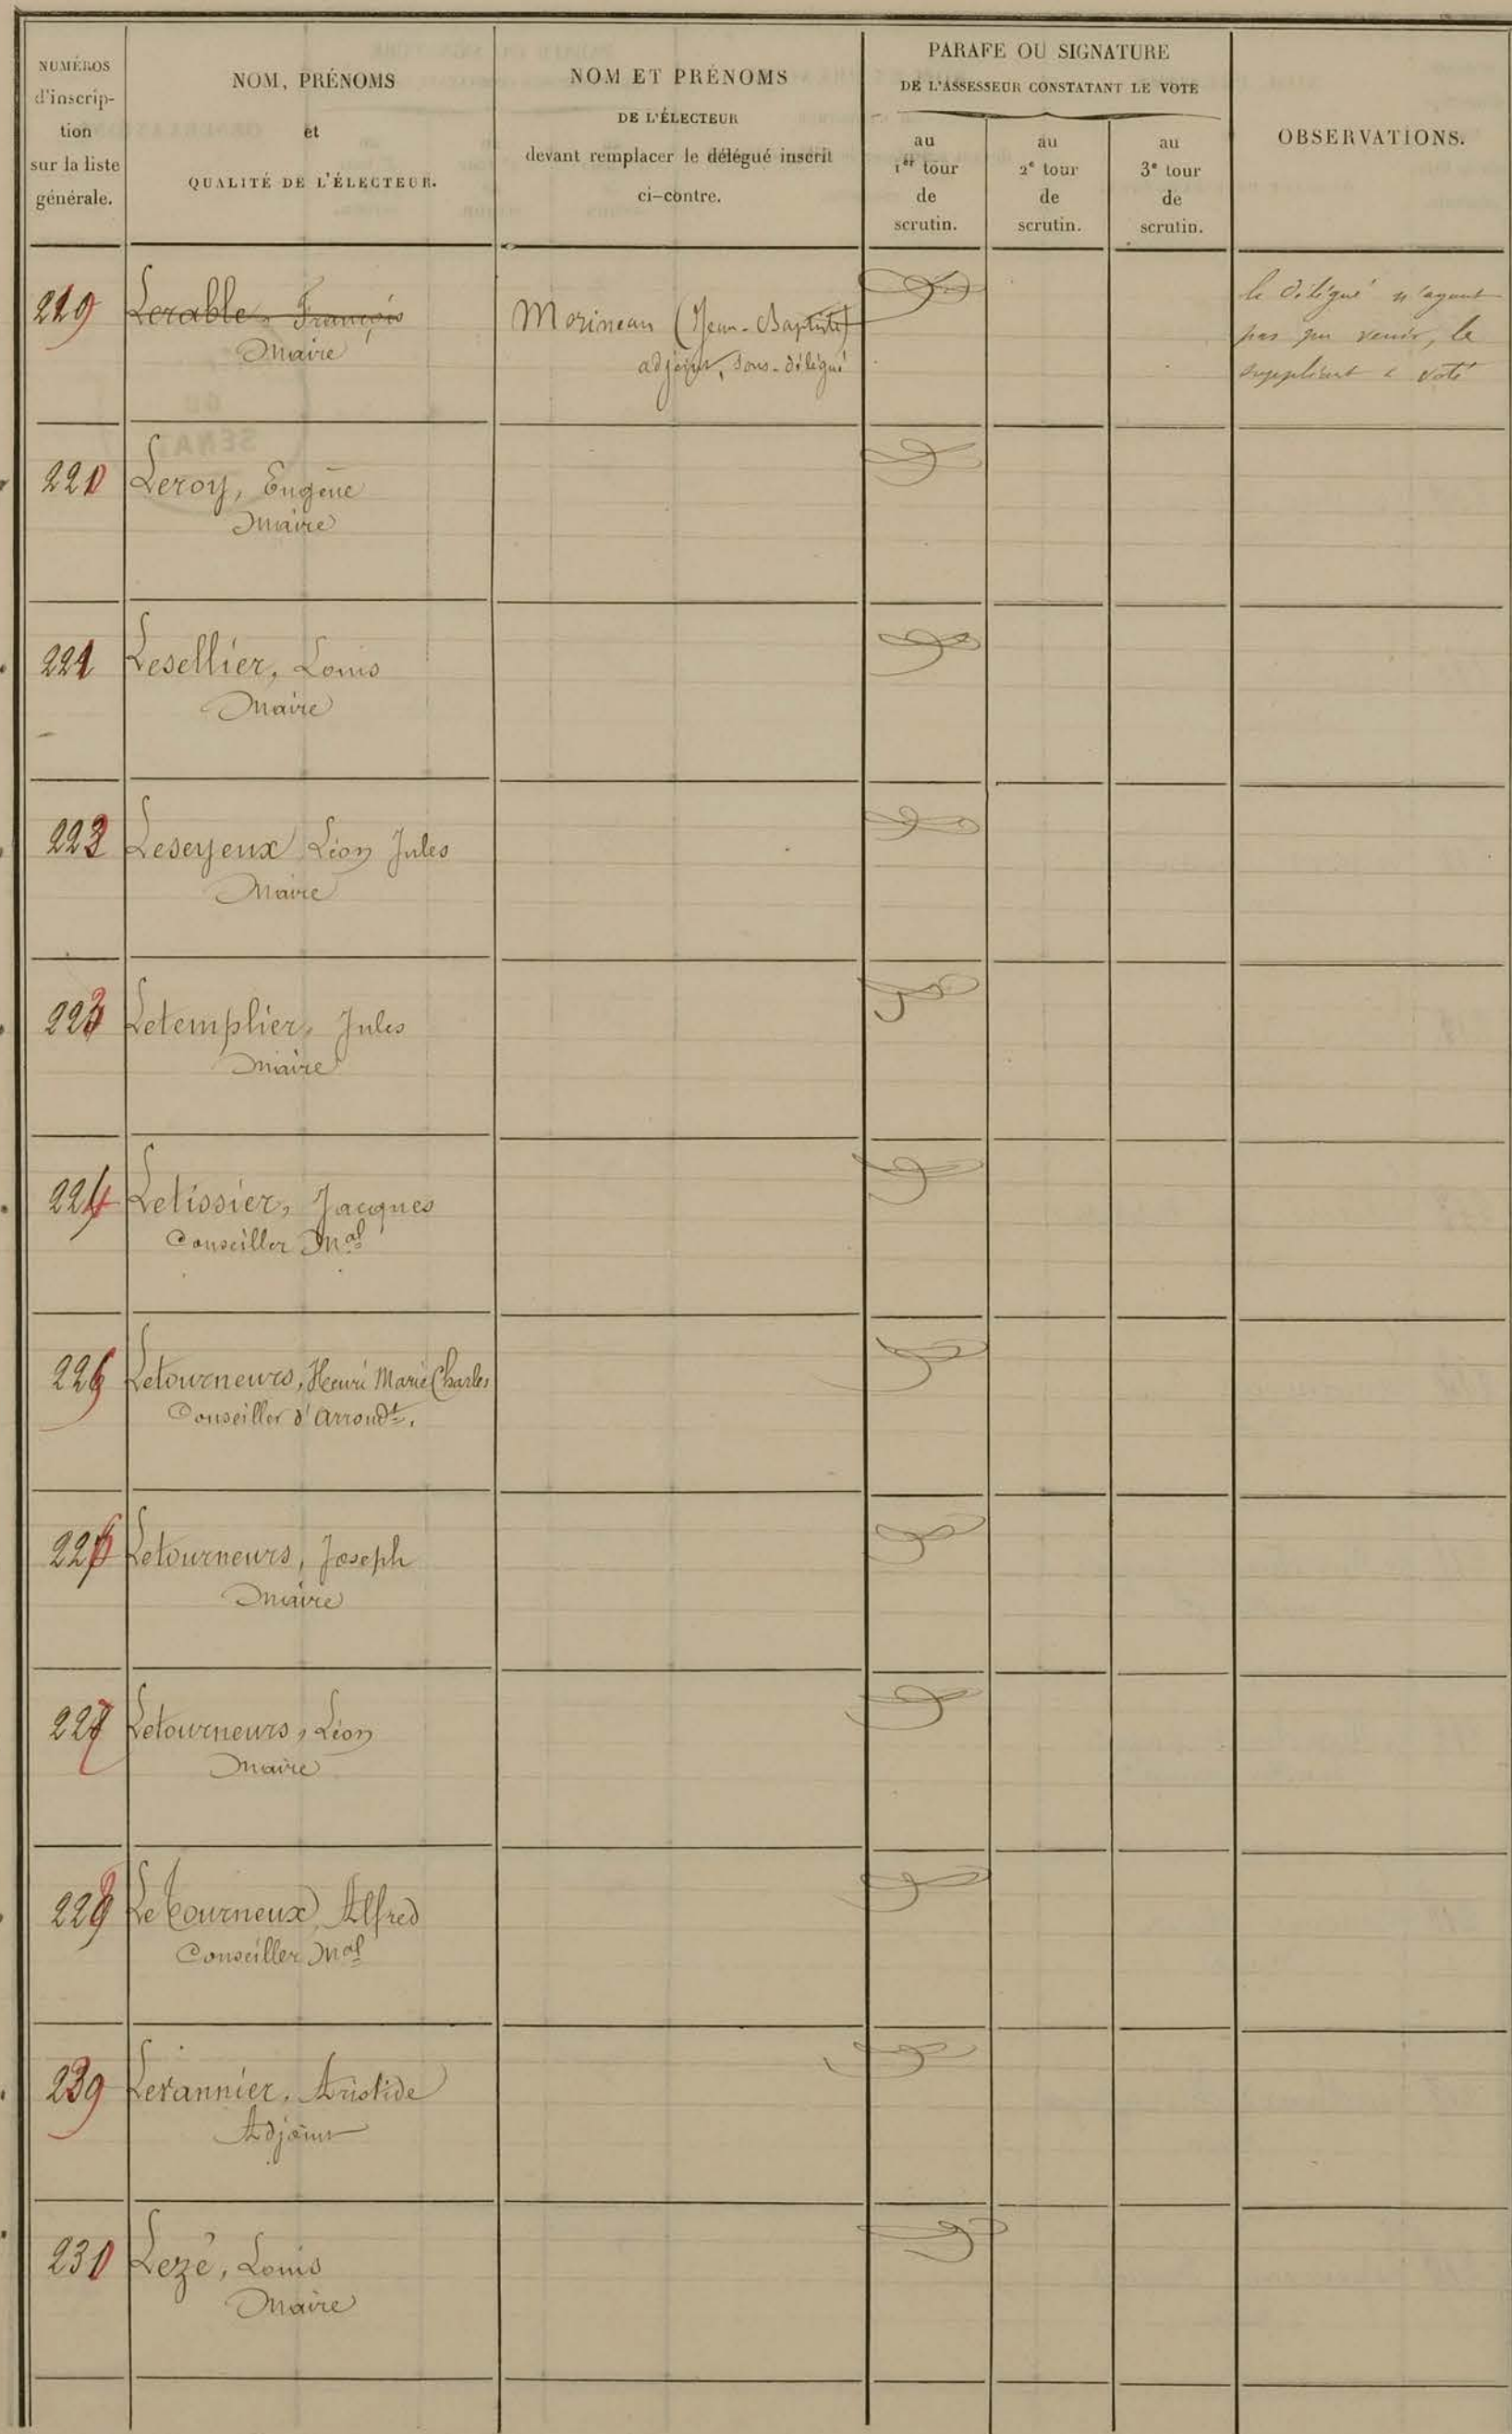 NUMÉROS
d'inscrip-
tion
sur la liste
générale.
NOM, PRÉNOMS
et
QUALITÉ DE L'ÉLECTEUR.
NOM ET PRÉNOMS
DE L'ÉLECTEUR
devant remplacer le délégué inscrit
ci-contre.
PARAFE OU SIGNATURE
DE L'ASSESSEUR CONSTATANT LE VOTE
au
1er tour
de
scrutin.
au
2e tour
de
scrutin.
au
3e tour
de
scrutin.
OBSERVATIONS.
219 Lerable François
Maire
Morineau (Jean-Baptiste)
adjoint, sous-délégué
le délégué n'ayant
pas pu venir, le
suppléant a voté
220 Leroy, Eugène
Maire
221 Lesellier, Louis
Maire
222 Leseyeux Léon Jules
Maire
223 Letemplier, Jules
Maire
224 Letissier, Jacques
Conseiller Mal
225 Letourneurs, Henri Marie Charles
Conseiller d'arrondt.
226 Letourneurs, Joseph
Maire
227 Letourneurs, Léon
Maire
228 Le Tourneux Alfred
Conseiller Mal
229 Levannier, Aristide
Adjoint
230 Lezé, Louis
Maire